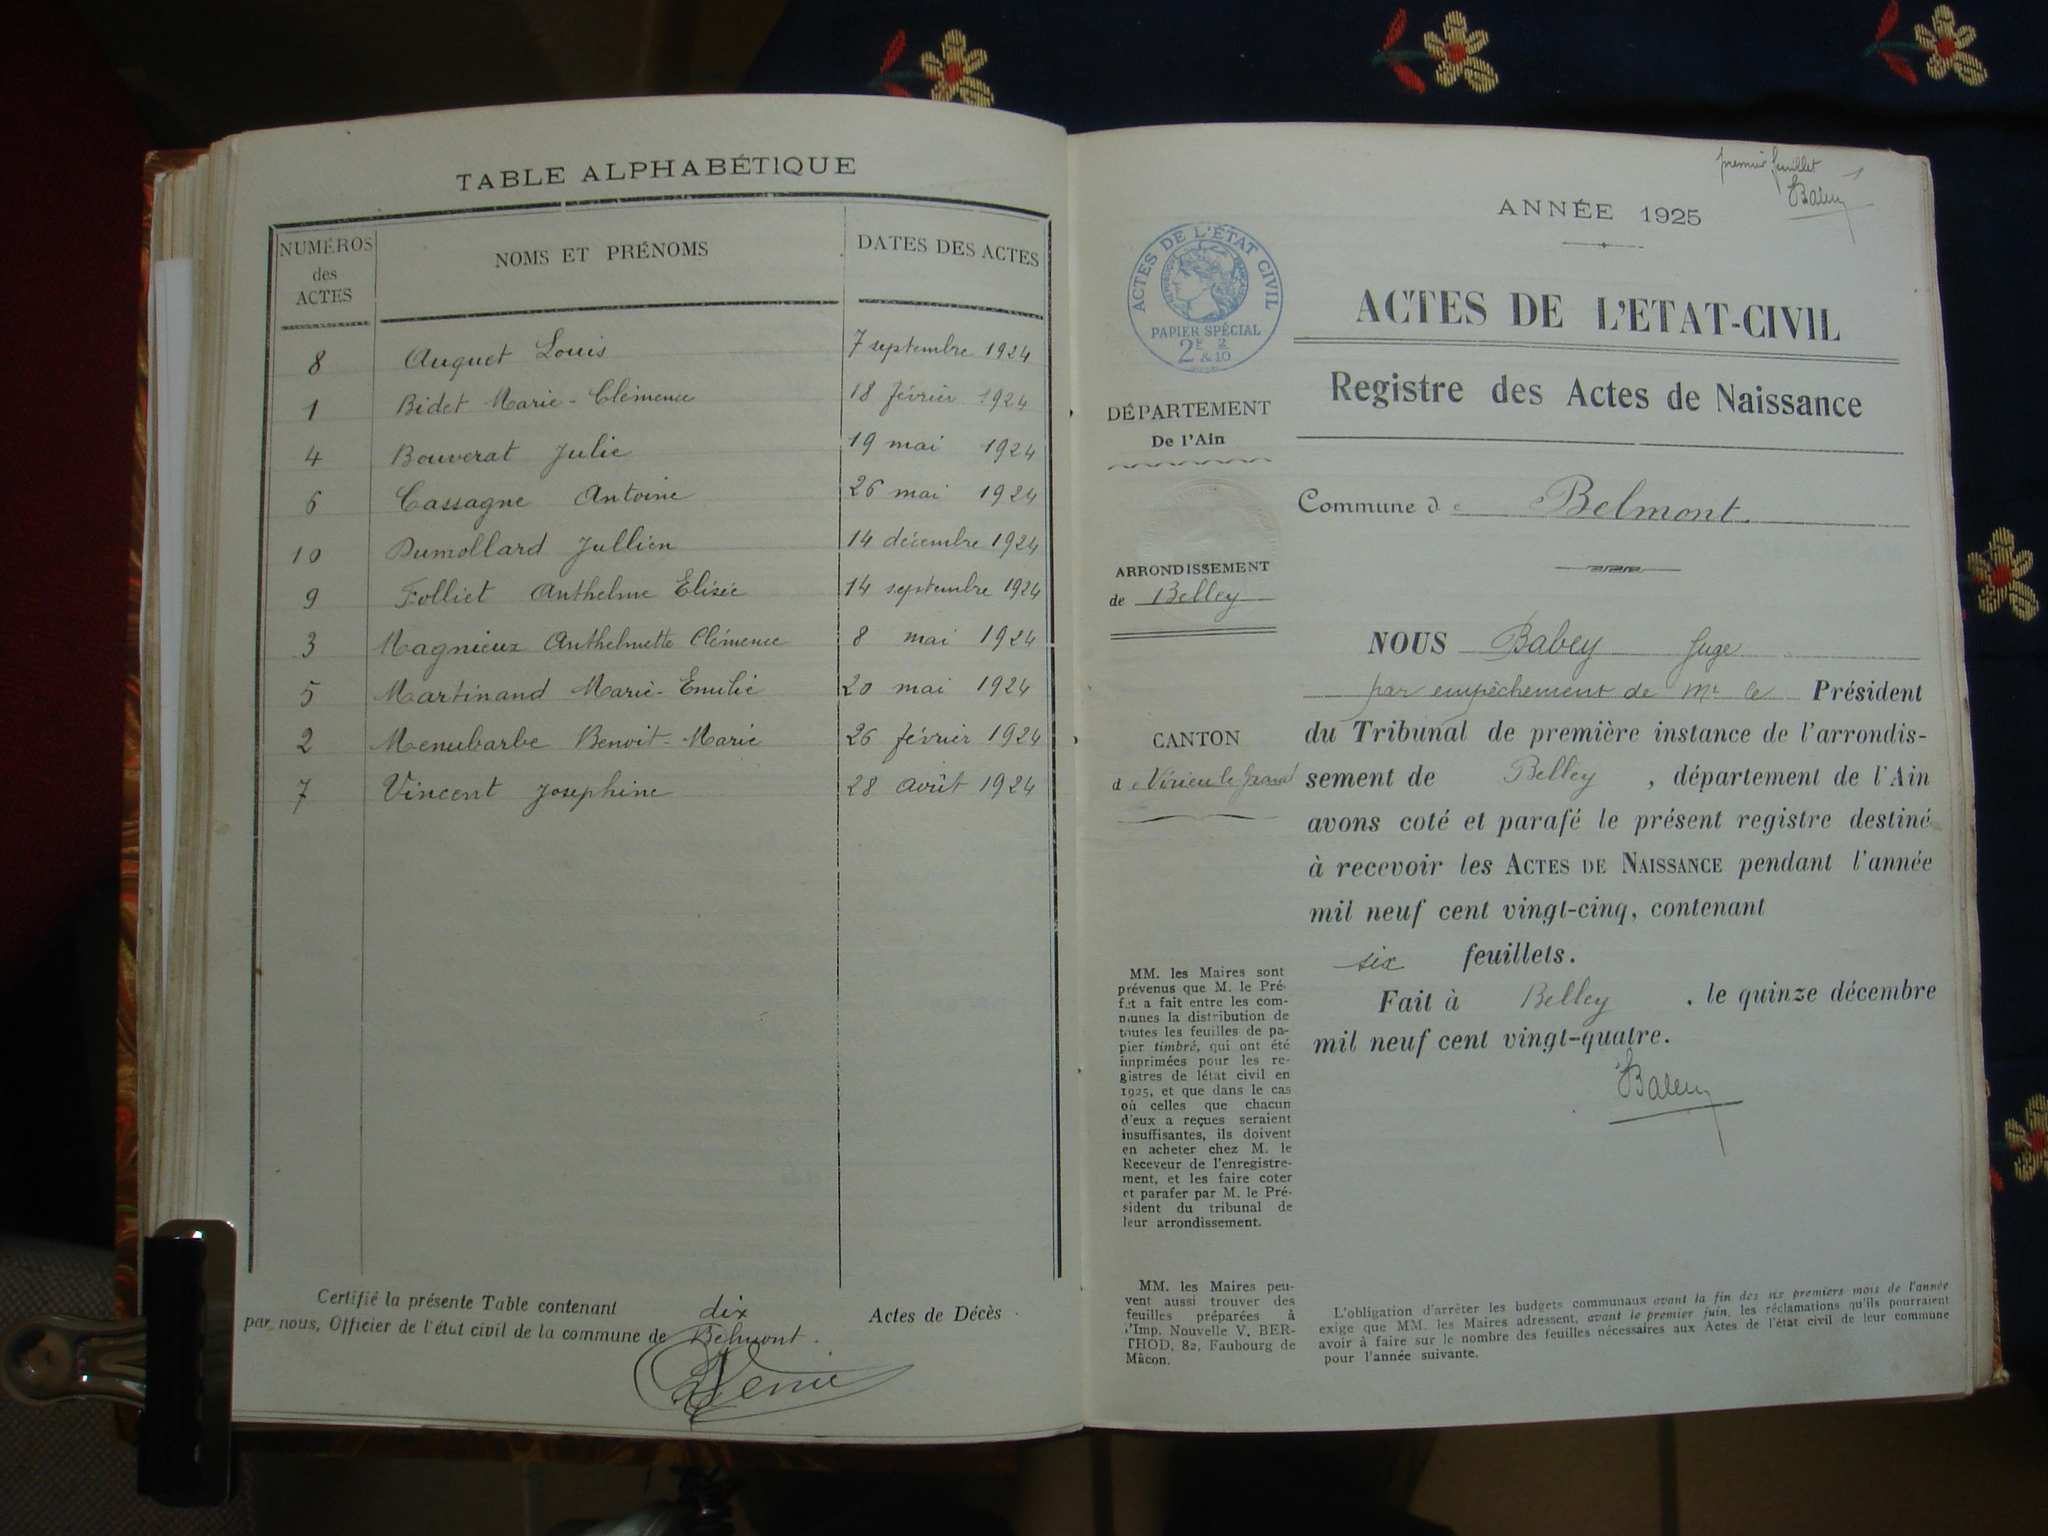 TABLE ALPHABÉTIQUE
NUMÉROS
des
ACTES
NOMS ET PRÉNOMS
DATES DES ACTES
8 Auguet Louis 7 septembre 1924
1 Bidet Marie-Clémence 18 février 1924
4 Bouverat Julie 19 mai 1924
6 Cassagne Antoine 26 mai 1924
10 Dumollard Jullien 14 décembre 1924
9 Folliet Anthelme Elisée 14 septembre 1924
3 Magnieux Anthelmette Clémence 8 mai 1924
5 Martinand Marie-Emilie 20 mai 1924
2 Menubarbe Benoit-Marie 26 février 1924
7 Vincent Josephine 28 août 1924
Certifié la présente Table contenant dix Actes de Décès
par nous, Officier de l'état civil de la commune de Belmont.
premier feuillet 1
ANNÉE 1925
ACTES DE L'ÉTAT CIVIL
RÉPUBLIQUE FRANÇAISE
PAPIER SPÉCIAL
2F 2
& 10
ACTES DE L'ETAT-CIVIL
Registre des Actes de Naissance
DÉPARTEMENT
De l'Ain
Commune de Belmont.
ARRONDISSEMENT
de Belley
CANTON
de Virieu le Grand
NOUS Babey Juge
par empêchement de Mr le Président
du Tribunal de première instance de l'arrondis-
sement de Belley, département de l'Ain
avons coté et parafé le présent registre destiné
à recevoir les ACTES DE NAISSANCE pendant l'année
mil neuf cent vingt-cinq, contenant
six feuillets.
Fait à Belley, le quinze décembre
mil neuf cent vingt-quatre.
MM. les Maires sont
prévenus que M. le Pré-
fet a fait entre les com-
munes la distribution de
toutes les feuilles de pa-
pier timbré, qui ont été
imprimées pour les re-
gistres de létat civil en
1925, et que dans le cas
où celles que chacun
d'eux a reçues seraient
insuffisantes, ils doivent
en acheter chez M. le
Receveur de l'enregistre-
ment, et les faire coter
et parafer par M. le Pré-
sident du tribunal de
leur arrondissement.
MM. les Maires peu-
vent aussi trouver des
feuilles préparées à
l'Imp. Nouvelle V. BER-
THOD, 82, Faubourg de
Mâcon.
L'obligation d'arrêter les budgets communaux avant la fin des six premiers mois de l'année
exige que MM. les Maires adressent, avant le premier juin, les réclamations qu'ils pourraient
avoir à faire sur le nombre des feuilles nécessaires aux Actes de l'état civil de leur commune
pour l'année suivante.